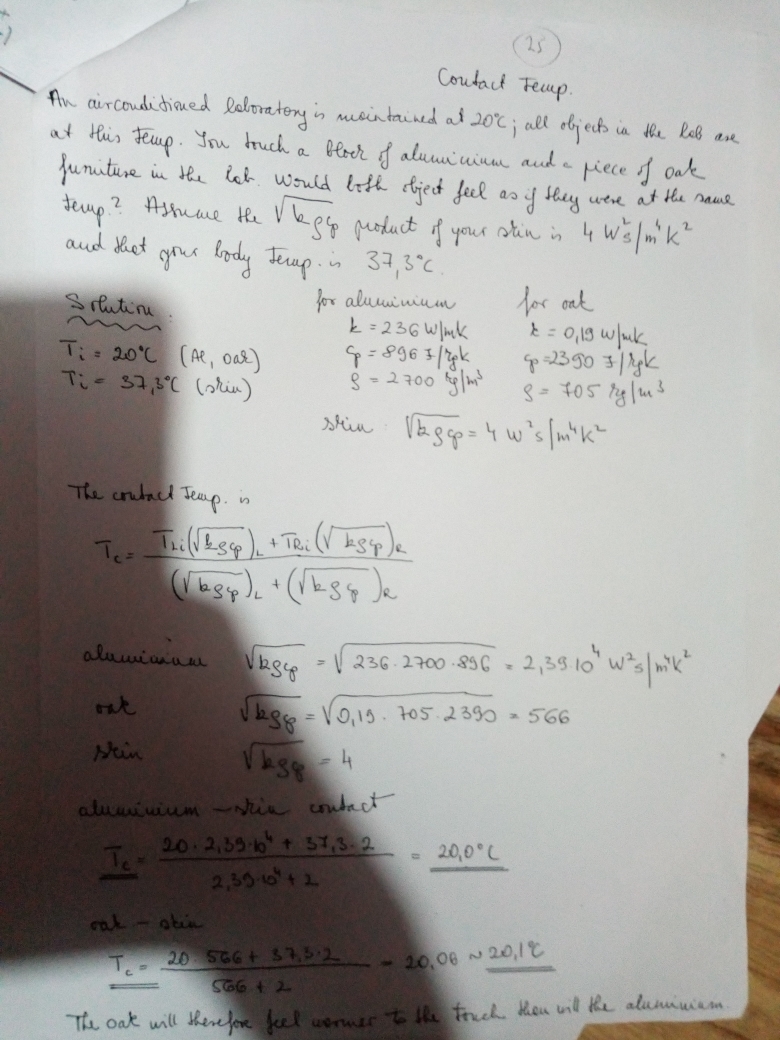 25
Contact Temp.
An airconditioned laboratory is maintained at 20°C; all objects in the lab are
at this temp. You touch a block of aluminium and a piece of oak
furniture in the lab. Would both object feel as if they were at the same
temp.? Assume the √kρcp product of your skin is 4 W²s/m⁴K²
and that your body temp. is 37,3°C.
Solution:
for aluminium for oak
k = 236 W/mK k = 0,19 W/mK
Ti = 20°C (Al, oak) cp = 896 J/kgK cp = 2390 J/kgK
Ti = 37,3°C (skin) ρ = 2700 kg/m³ ρ = 705 kg/m³
skin: √kρcp = 4 W²s/m⁴K²
The contact temp. is
Tc = TLi(√kρcp)L + TRi(√kρcp)R
(√kρcp)L + (√kρcp)R
aluminium √kρcp = √236·2700·896 = 2,39·10⁴ W²s/m⁴K²
oak √kρcp = √0,19·705·2390 = 566
skin √kρcp = 4
aluminium - skin contact
Tc = 20·2,39·10⁴ + 37,3·2 = 20,0°C
2,39·10⁴ + 2
oak - skin
Tc = 20·566 + 37,3·2 = 20,06 ~ 20,1°C
566 + 2
The oak will therefore feel warmer to the touch than will the aluminium.